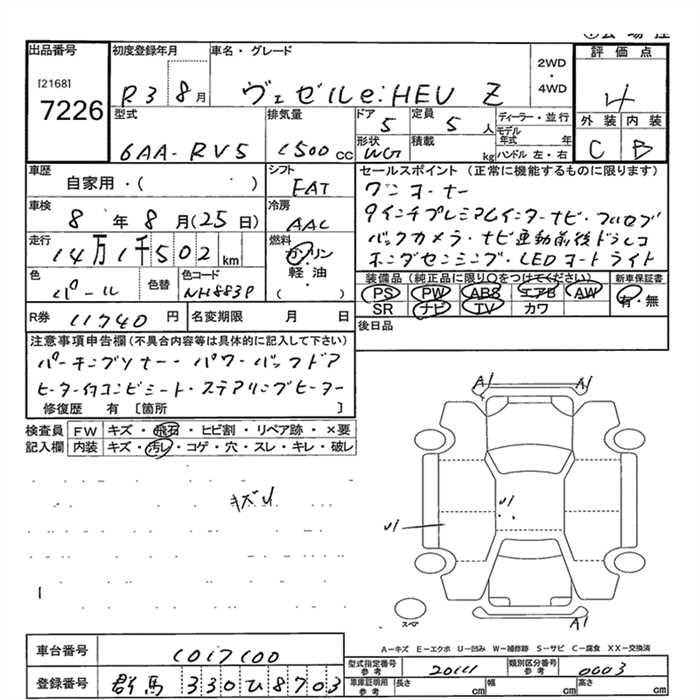 出品番号 初度登録年月 車名・グレード 評価点
[2168]
7226 R3 8月 ヴェゼルe:HEV Z 2WD・4WD 4
型式 排気量 ドア 定員 ディーラー・並行 外装 内装
6AA-RV5 1500CC 5 5人 モデル年式 年 C B
形状 積載 ハンドル 左・右
WG kg
車歴 シフト セールスポイント(正常に機能するものに限ります)
自家用・( ) FAT ワンオーナー
車検 冷房 9インチプレミアムインターナビ・フルセグ
8年8月(25日) AAC バックカメラ・ナビ連動前後ドラレコ
走行 燃料 ホンダセンシング・LEDオートライト
14万1千502km ガソリン
軽油
( )
色 色替 色コード 装備品(純正品に限り○をつけてください) 新車保証書
パール NH883P PS PW ABS エアB AW 有・無
SR ナビ TV カワ
R券 11740円 名変期限 月 日 後日品
注意事項申告欄(不具合内容等は具体的に記入して下さい)
パーキングソナー・パワーバックドア
ヒーター付コンビシート・ステアリングヒーター
修復歴 有 [箇所 ]
検査員 FW キズ・飛石・ヒビ割・リペア跡・×要
記入欄 内装 キズ・汚レ・コゲ・穴・スレ・キレ・破レ
A1 A1
キズU
U1
U1
スペア
A-キズ E-エクボ U-凹み W-補修跡 S-サビ C-腐食 XX-交換済
車台番号 1017100
型式指定番号 参考 20111 類別区分番号 参考 0003
登録番号 群馬 330ひ8703
車庫証明用 参考 長さ cm 幅 cm 高さ cm